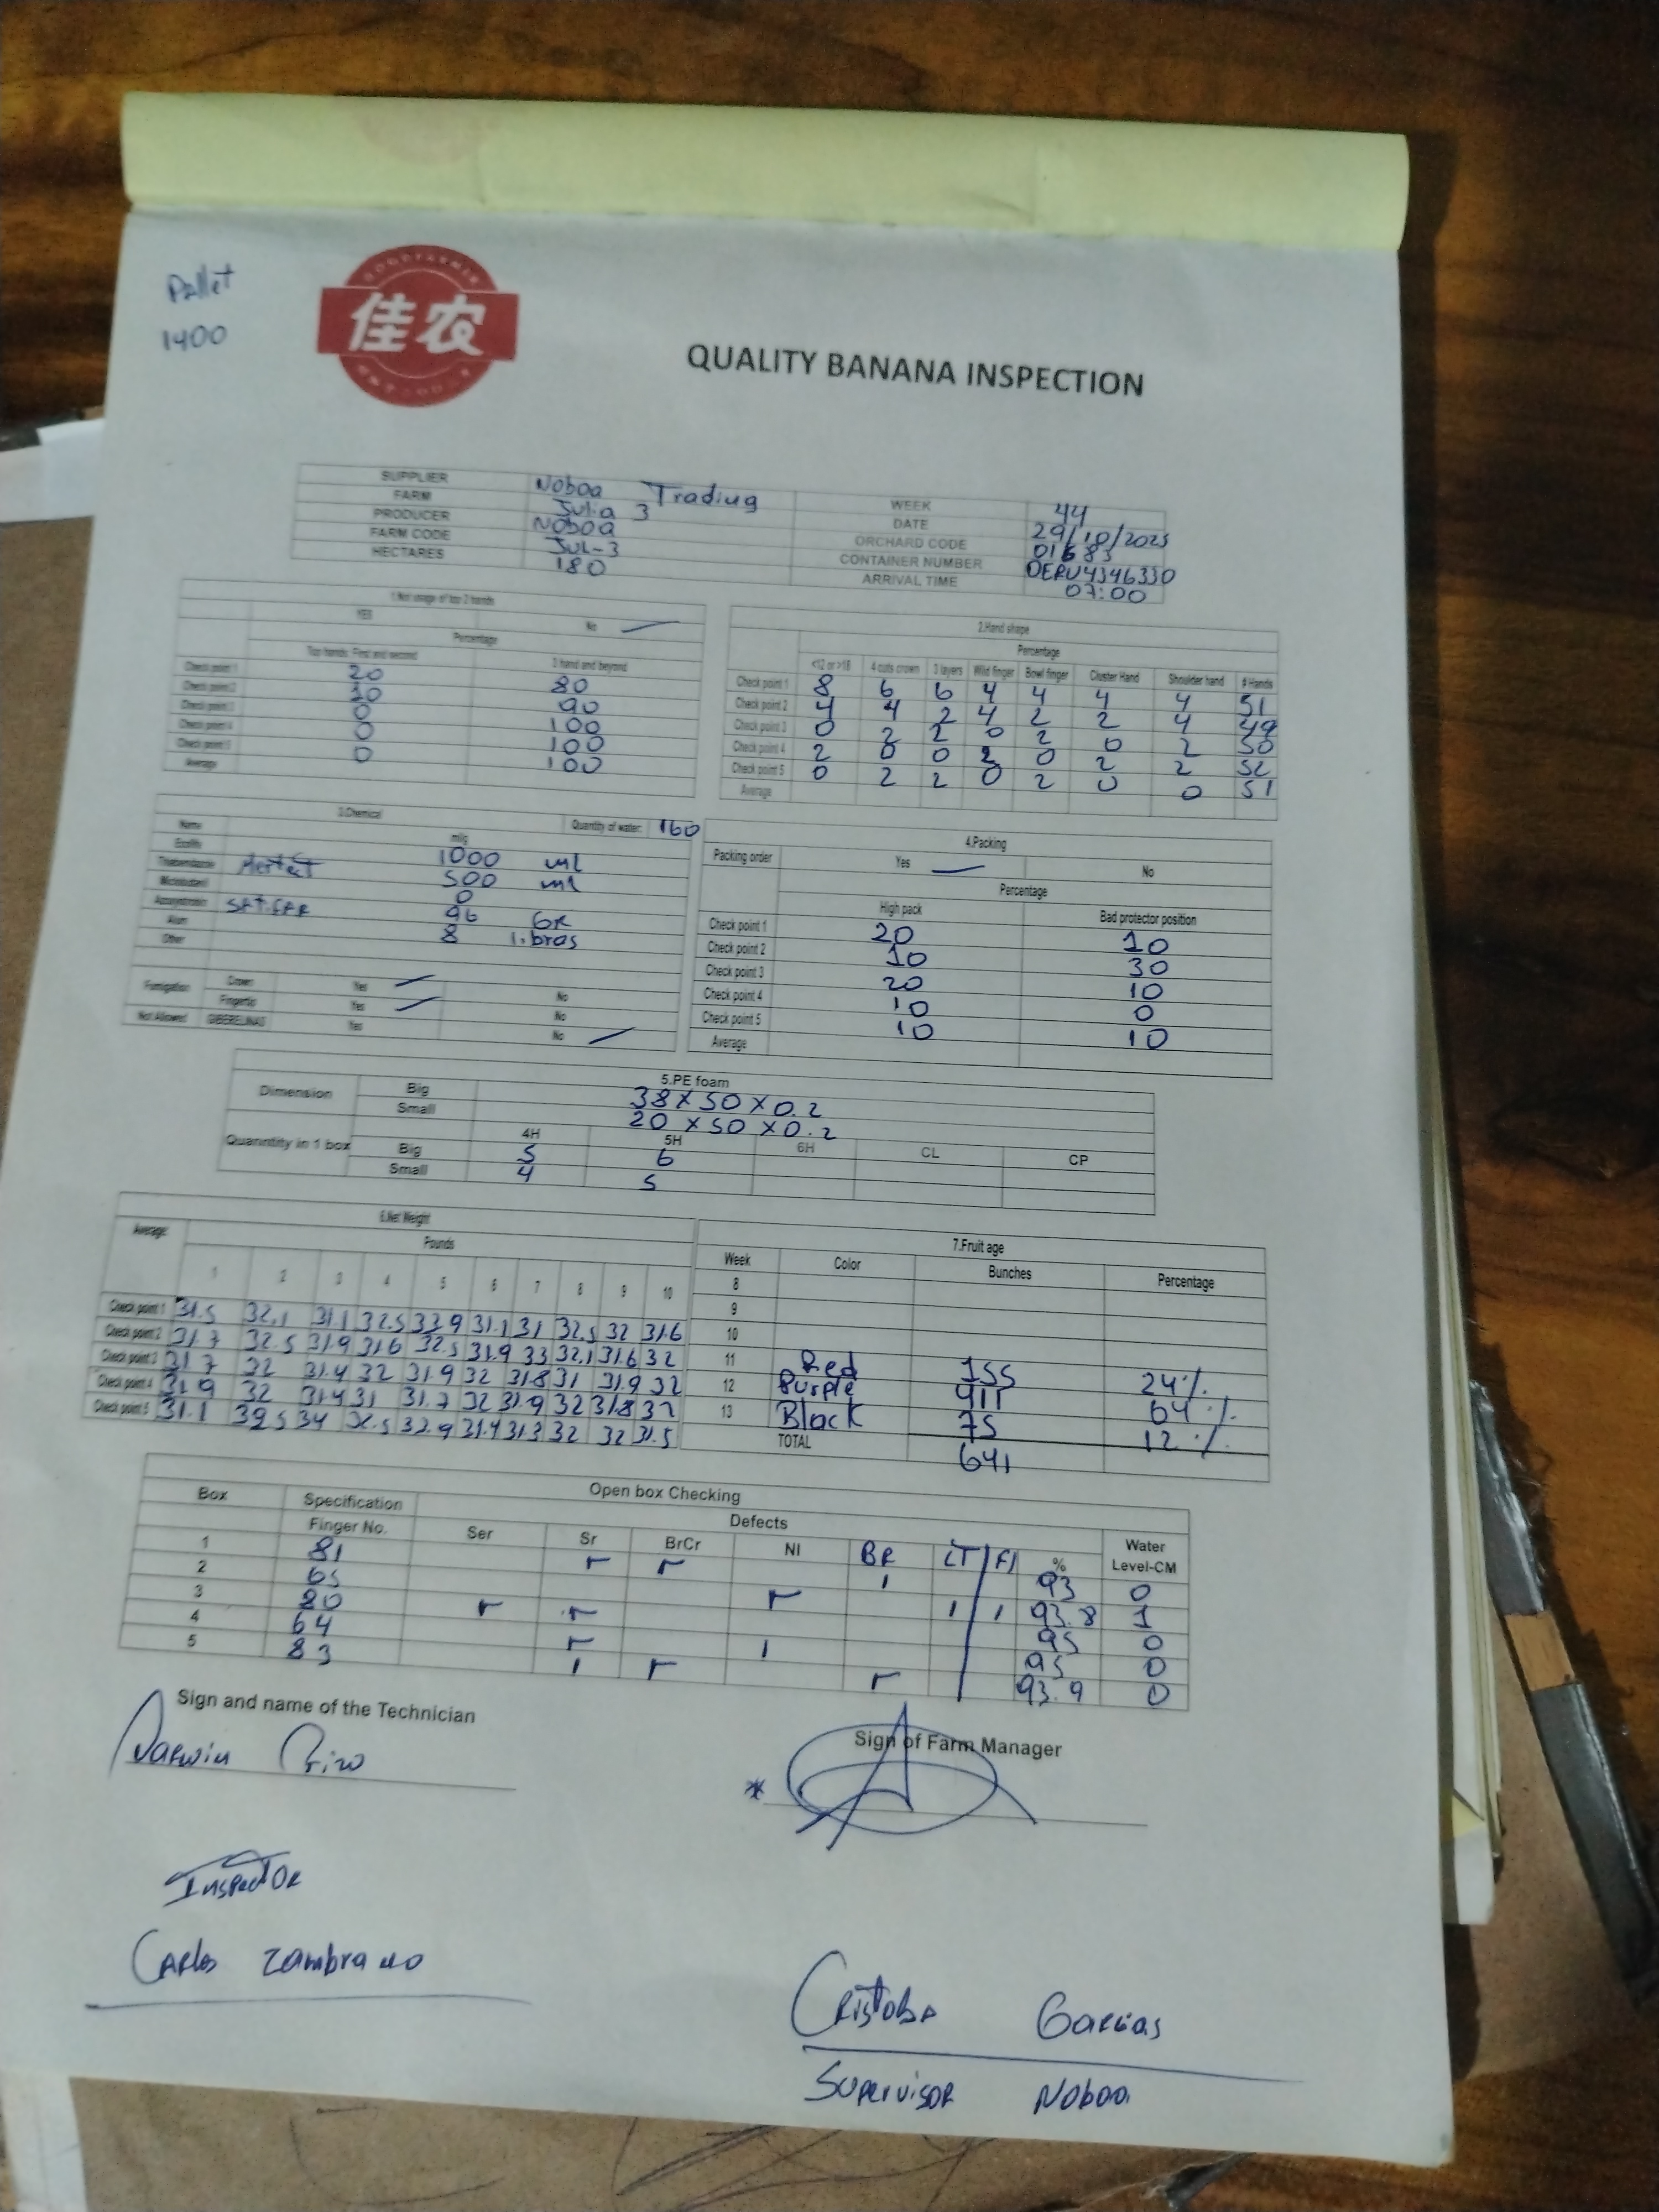 Pallet
1400
GOODFARMER
佳农
QUALITY BANANA INSPECTION
SUPPLIER Noboa Trading WEEK 44
FARM Julia 3 DATE 29/10/2025
PRODUCER Noboa ORCHARD CODE
FARM CODE JUL-3 CONTAINER NUMBER
HECTARES 180 ARRIVAL TIME 07:00
1.Not usage of top 2 hands
YES No
Percentage
Top hands: First and second 3 hand and beyond
Check point 1 20 80
Check point 2 10 90
Check point 3 0 100
Check point 4 0 100
Check point 5 0 100
Average
2.Hand shape
Percentage
<12 or >18 4 cuts crown 3 layers Wild finger Bowl finger Cluster Hand Shoulder hand # Hands
Check point 1 8 6 6 4 4 4 4 51
Check point 2 4 4 2 4 2 2 4 49
Check point 3 0 2 2 0 2 0 2 50
Check point 4 2 0 0 2 0 2 2 52
Check point 5 0 2 2 0 2 0 0 51
Average
3.Chemical Quantity of water: 160
Name ml/g
Ecolife 1000 ml
Thiabendazole Mertect 500 ml
Miclobutanil 0
Azoxystrobin 96 GR
Alum 8 libras
Other
Fumigation Crown Yes No
Fingertip Yes No
Not Allowed GIBERELINAS Yes No
4.Packing
Packing order Yes No
Percentage
High pack Bad protector position
Check point 1 20 10
Check point 2 10 30
Check point 3 20 10
Check point 4 10 0
Check point 5 10 10
Average
5.PE foam
Dimension Big 38 x 50 x 0.2
Small 20 x 50 x 0.2
4H 5H 6H CL CP
Quanntity in 1 box Big 5 6
Small 4 5
6.Net Weight
Average: Pounds
1 2 3 4 5 6 7 8 9 10
Check point 1 31.5 32.1 31.1 32.5 31.1 31 32.5 32 31.6
Check point 2 31.7 32.5 31.9 31.6 32.5 31.9 33 32.1 31.6 32
Check point 3 31.7 32 31.4 32 31.9 32 31.8 31 31.9 32
Check point 4 31.9 32 31.4 31 31.7 32 31.9 32 31.8 32
Check point 5 31.1 34 32.9 31.4 31.3 32 32 31.5
7.Fruit age
Week Color Bunches Percentage
8
9
10
11 Red 155 24%
12 Purple 411 64%
13 Black 75 12%
TOTAL 641
Open box Checking
Box Specification Defects Water
Finger No. Ser Sr BrCr NI BR LT FI % Level-CM
1 81 93 0
2 65 93.8 1
3 80 95 0
4 64 95 0
5 83 93.9 0
Sign and name of the Technician
Darwin
Sign of Farm Manager
*
Inspector
Carlos Zambrano
Garcias
Supervisor Noboa